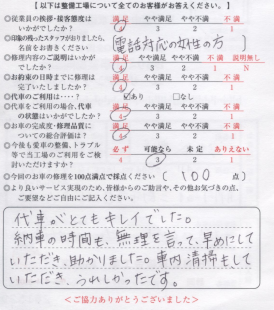 【以下は整備工場について全てのお客様がお答えください。】
◎従業員の挨拶・接客態度は 満足 やや満足 やや不満 不満
いかがでしたか? 4 3 2 1
◎印象の残ったスタッフが おりましたら、
名前をお書きください [電話対応の女性の方]
◎修理内容のご説明はいかが 満足 やや満足 やや不満 不満 説明無し
でしたか? 4 3 2 1 N
◎お約束の日時までに修理は 満足 やや満足 やや不満 不満
完了いたしましたか? 4 3 2 1
◎代車のご利用は…? ☑あり □なし
◎代車をご利用の場合、代車 満足 やや満足 やや不満 不満
の状態はいかがでしたか? 4 3 2 1
◎お車の完成度・修理品質に 満足 やや満足 やや不満 不満
ついての総合評価は? 4 3 2 1
◎今後も愛車の整備、トラブル 必ず 可能なら 未定 ありえない
等で当工場のご利用をご検 4 3 2 1
討いただけますか?
◎今回のお車の修理を100点満点で採点ください (100 点)
◎より良いサービス実現のため、皆様からのご助言や、その他お気づきの点、
ご要望などご自由にご記入ください。
代車がとてもキレイでした。
納車の時間も、無理を言って、早めにして
いただき、助かりました。車内清掃もして
いただき、うれしかったです。
<ご協力ありがとうございました>